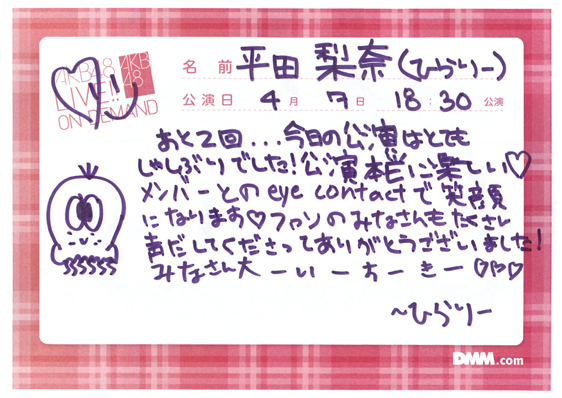 AKB48
LIVE!!
ON DEMAND
AKB
48
名前 平田 梨奈(ひらりー)
公演日 4月 7日 18:30 公演
あと2回...今日の公演はとても
じゃしぶりでした!公演本当に楽しい♡
メンバーとのeye contactで笑顔
になります♡ファンのみなさんもたくさん
声だしてくださってありがとうございました!
みなさん大ーいーすーきー♡♡♡
〜ひらりー
DMM.com